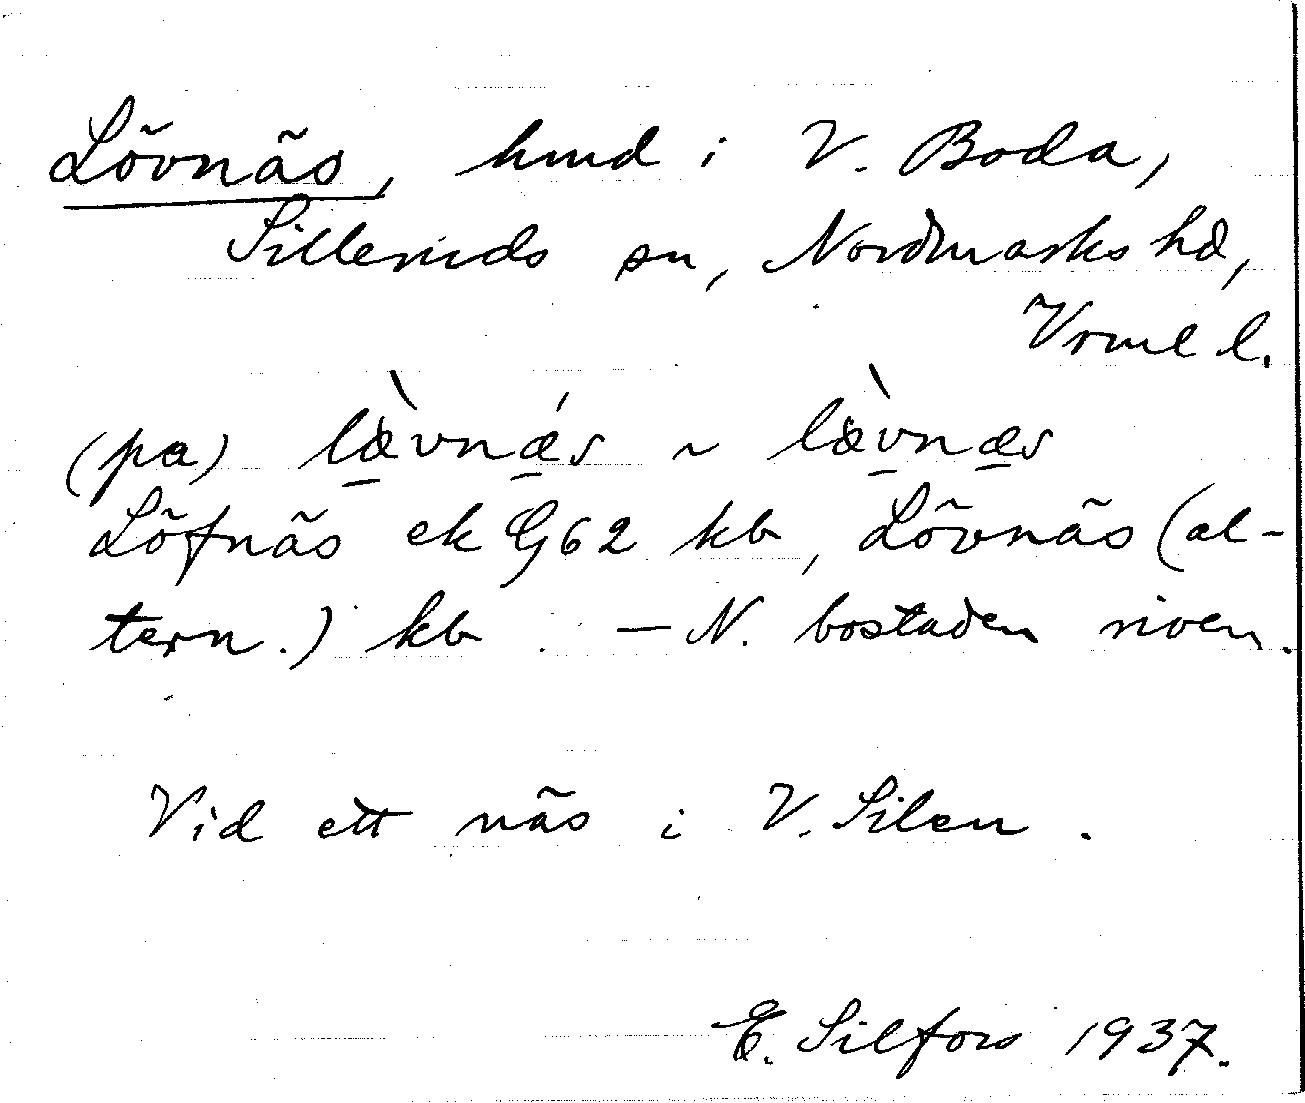 Lövnäs, hmd i V. Boda,
Silleruds sn, Nordmarks hd,
Vrml l.
(pa) læ̀vnǽs ~ læ̀vnæs
Löfnäs ek G62 kb, Lövnäs (al-
tern.) kb. — N. bostaden riven.
Vid ett näs i V. Silen.
E. Silfors 1937.